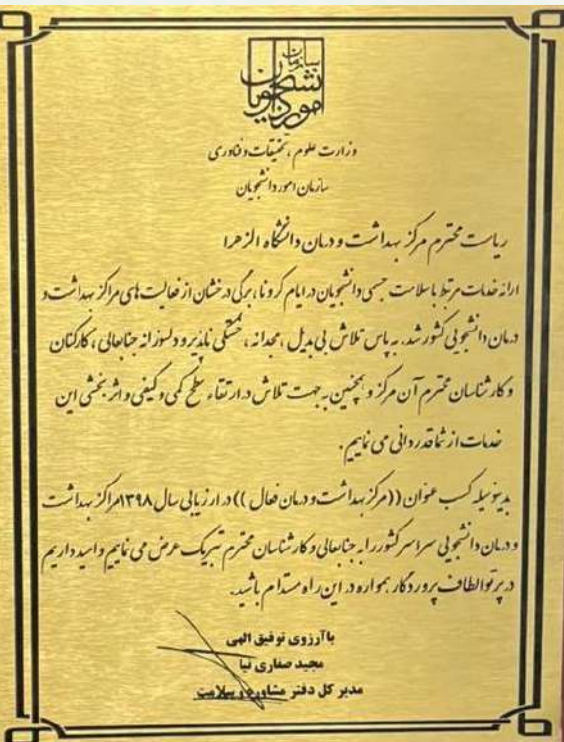 سازمان امور دانشجویان
وزارت علوم، تحقیقات و فناوری
سازمان امور دانشجویان
ریاست محترم مرکز بهداشت و درمان دانشگاه الزهرا
ارائه خدمات مرتبط با سلامت جسمی دانشجویان در ایام کرونا، برگی درخشان از فعالیت های مراکز بهداشت و
درمان دانشجویی کشور شد. به پاس تلاش بی بدیل، مجدانه، خستگی ناپذیر و دلسوزانه جنابعالی، کارکنان
و کارشناسان محترم آن مرکز و همچنین به جهت تلاش در ارتقاء سطح کمی و کیفی و اثربخشی این
خدمات از شما قدردانی می نماییم.
بدینوسیله کسب عنوان ((مرکز بهداشت و درمان فعال)) در ارزیابی سال ۱۳۹۸ مراکز بهداشت
و درمان دانشجویی سراسر کشور را به جنابعالی و کارشناسان محترم تبریک عرض می نماییم و امید داریم
در پرتو الطاف پروردگار همواره در این راه مستدام باشید.
باآرزوی توفیق الهی
مجید صفاری نیا
مدیر کل دفتر مشاوره و سلامت